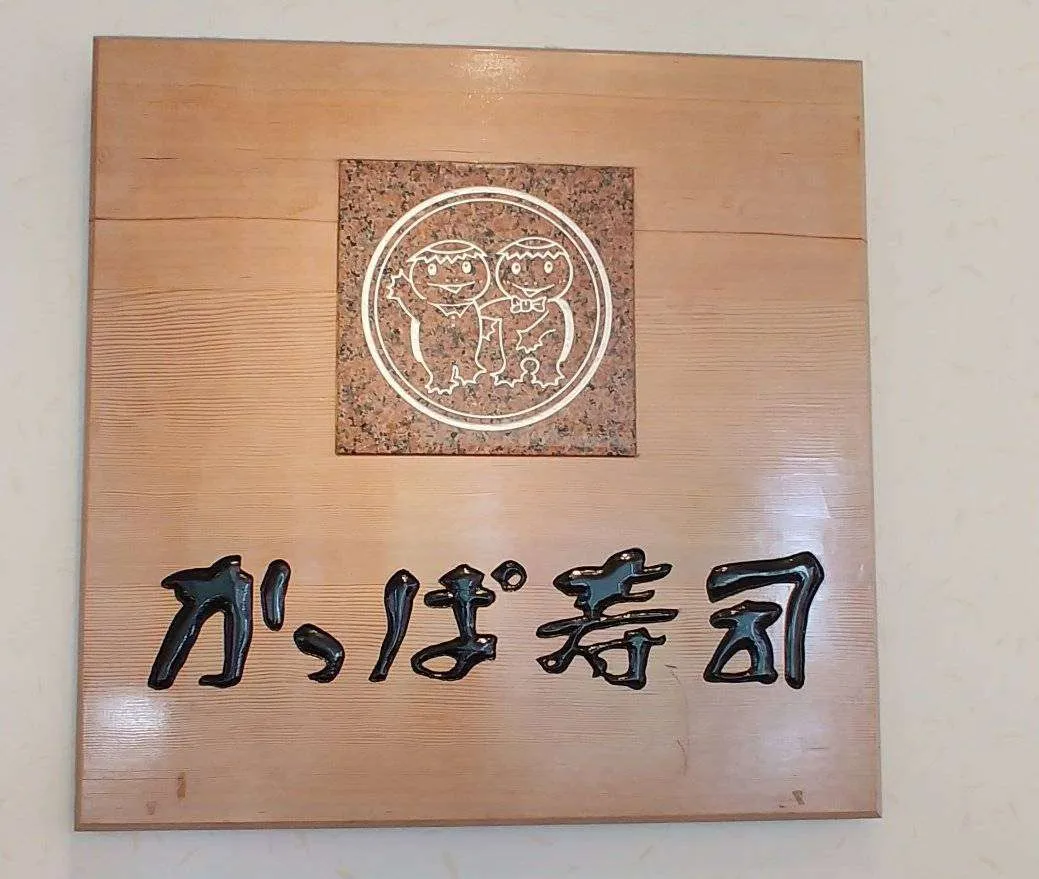 かっぱ寿司